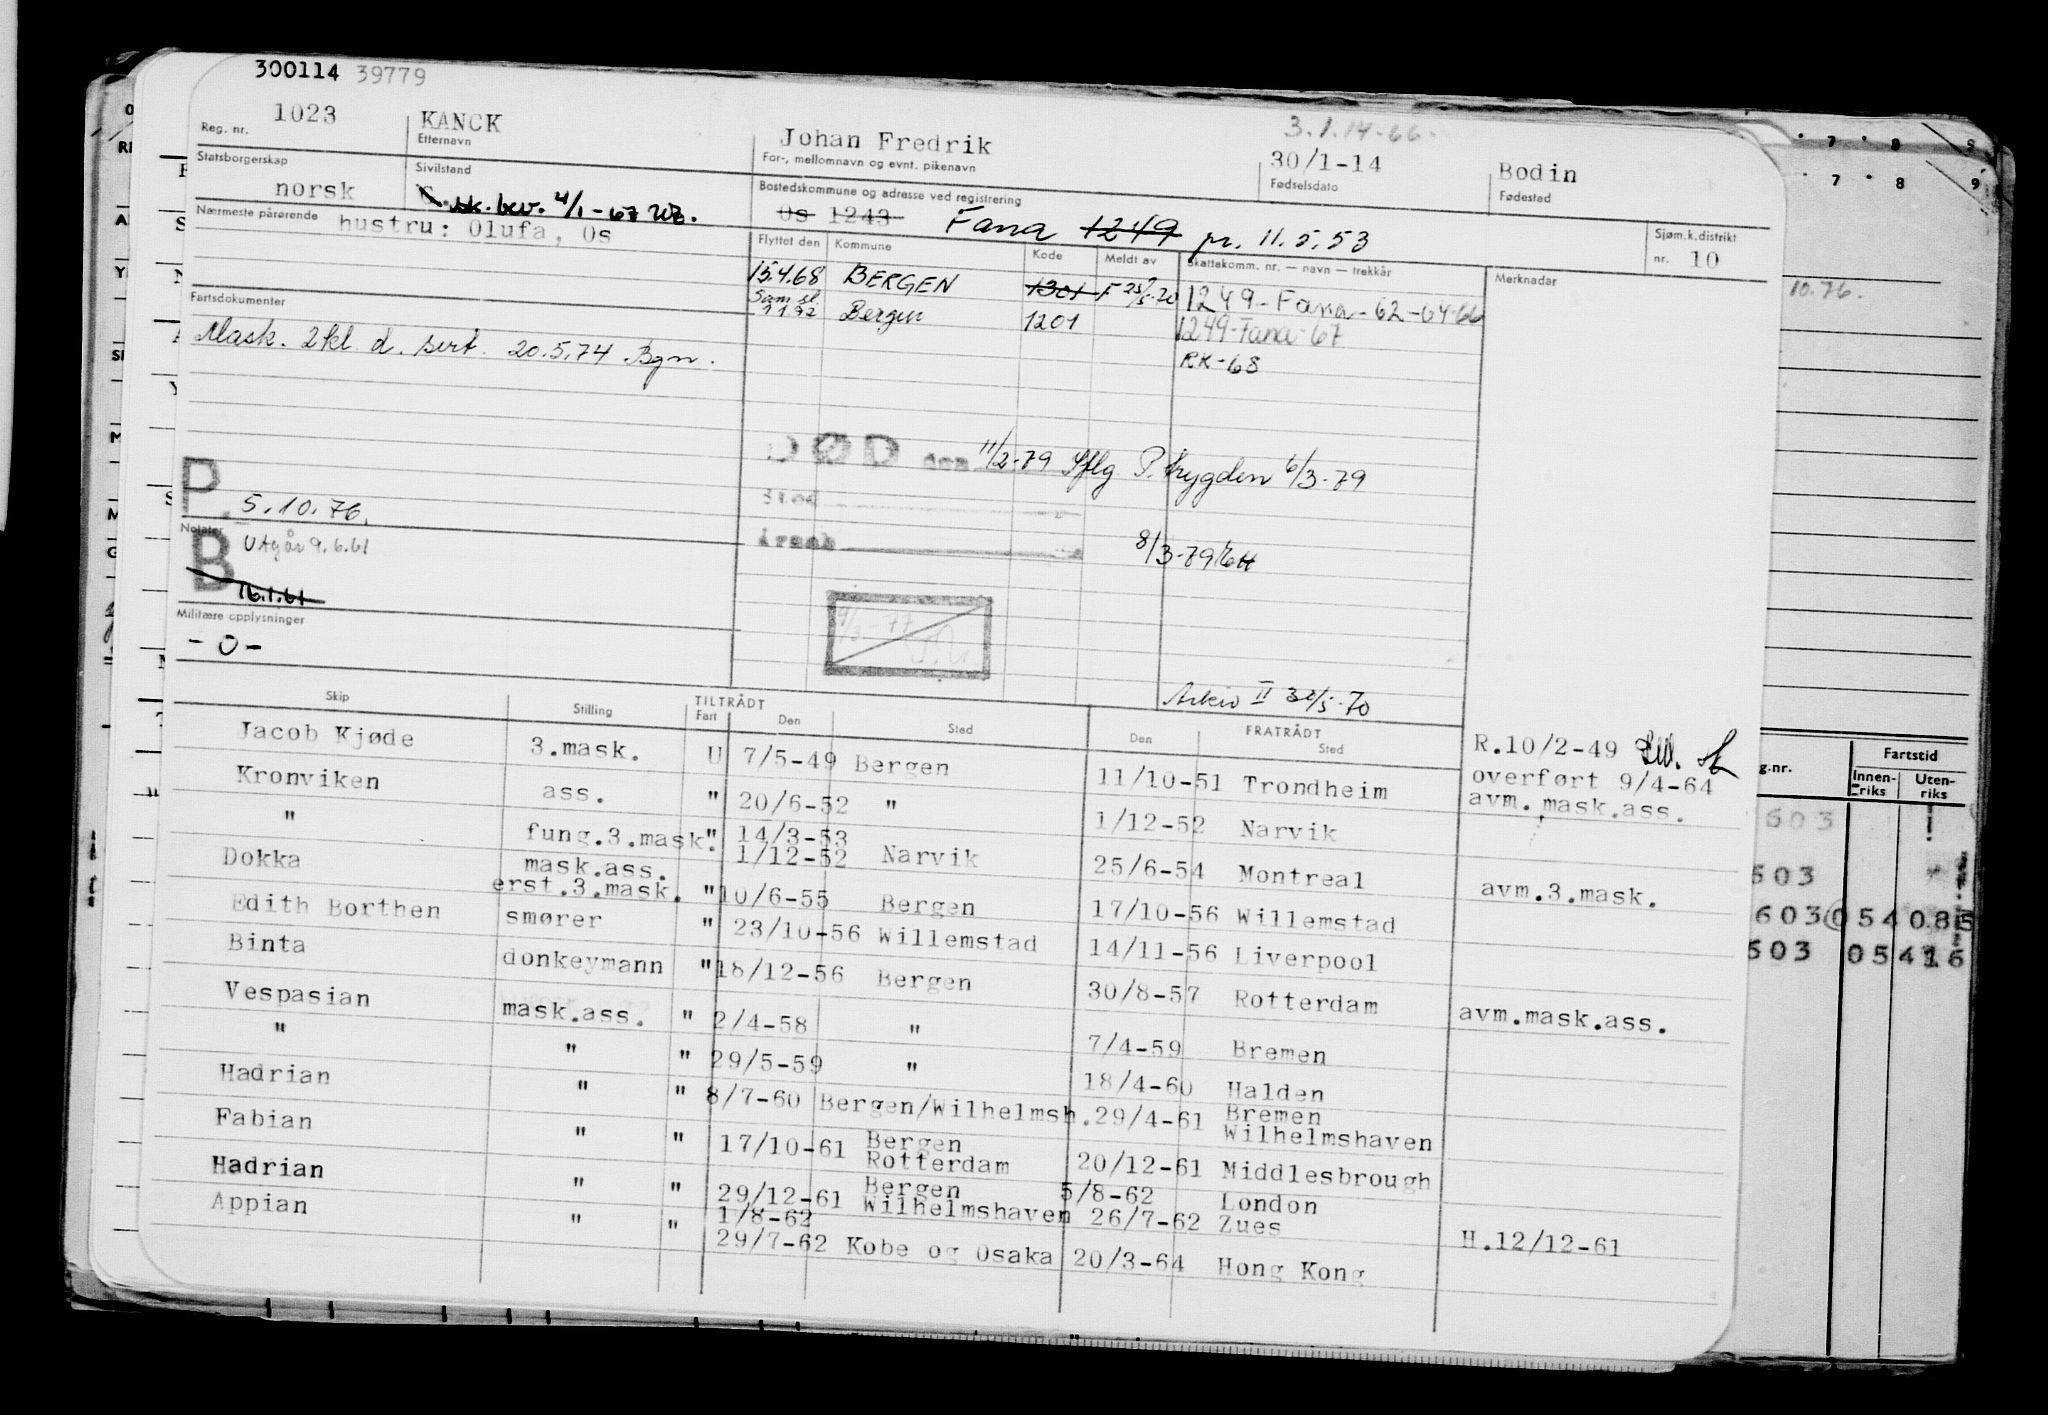 300114 39779
Reg. nr. 1023
KANCK
Etternavn
Johan Fredrik
For-, mellomnavn og evnt. pikenavn
3.1.14-66.
30/1-14
Fødselsdato
Bodin
Fødested
Statsborgerskap
norsk
Sivilstand
sk. bev. 4/1-67
Bostedskommune og adresse ved registrering
Os 1243 Fana 1249 pr. 11.5.53
Sjøm.k.distrikt
nr. 10
Nærmeste pårørende
hustru: Olufa, Os
Flyttet den Kommune Kode Meldt av Skattekomm. nr. — navn — trekkår Merknader
15.4.68 BERGEN 1301 F 25/5-70 1249-Fana-62-64-66
Sam sl.
1.1.72 Bergen 1201 1249-Fana-67
RK-68
Fartsdokumenter
Mask. 2kl. d. sert. 20.5.74 Bgn.
DØD den 11/2-79 Sflg P.trygden 6/3-79
Sted
Årsak 8/3-79
P. 5.10.76.
Notater
B Utgår 9.6.61
16.1.61
Militære opplysninger
- 0 -
9/3-77
Arkiv II
Skip Stilling TILTRÅDT Fart Den Sted FRATRÅDT Den Sted
Jacob Kjøde 3.mask. U 7/5-49 Bergen 11/10-51 Trondheim R.10/2-49
overført 9/4-64
Kronviken ass. " 20/6-52 " 1/12-52 Narvik avm. mask.ass.
" fung.3.mask. " 14/3-53
mask.ass. 1/12-52 Narvik 25/6-54 Montreal avm.3.mask.
Dokka erst.3.mask. " 10/6-55 Bergen 17/10-56 Willemstad
Edith Borthen smører " 23/10-56 Willemstad 14/11-56 Liverpool
Binta donkeymann " 18/12-56 Bergen 30/8-57 Rotterdam avm.mask.ass.
Vespasian mask.ass. " 2/4-58 " 7/4-59 Bremen
" " " 29/5-59 " 18/4-60 Halden
Hadrian " " 8/7-60 Bergen/Wilhelmsh. 29/4-61 Bremen
Wilhelmshaven
Fabian " " 17/10-61 Bergen
Rotterdam 20/12-61 Middlesbrough
Hadrian " " 29/12-61 Bergen 5/8-62 London
1/8-62 Wilhelmshaven 26/7-62 Zues H.12/12-61
Appian " " 29/7-62 Kobe og Osaka 20/3-64 Hong Kong
7 8 9
7 8 9
10.76.
g.nr. Fartstid
Innen-riks Uten-riks
603
603
603 054 085
603 054